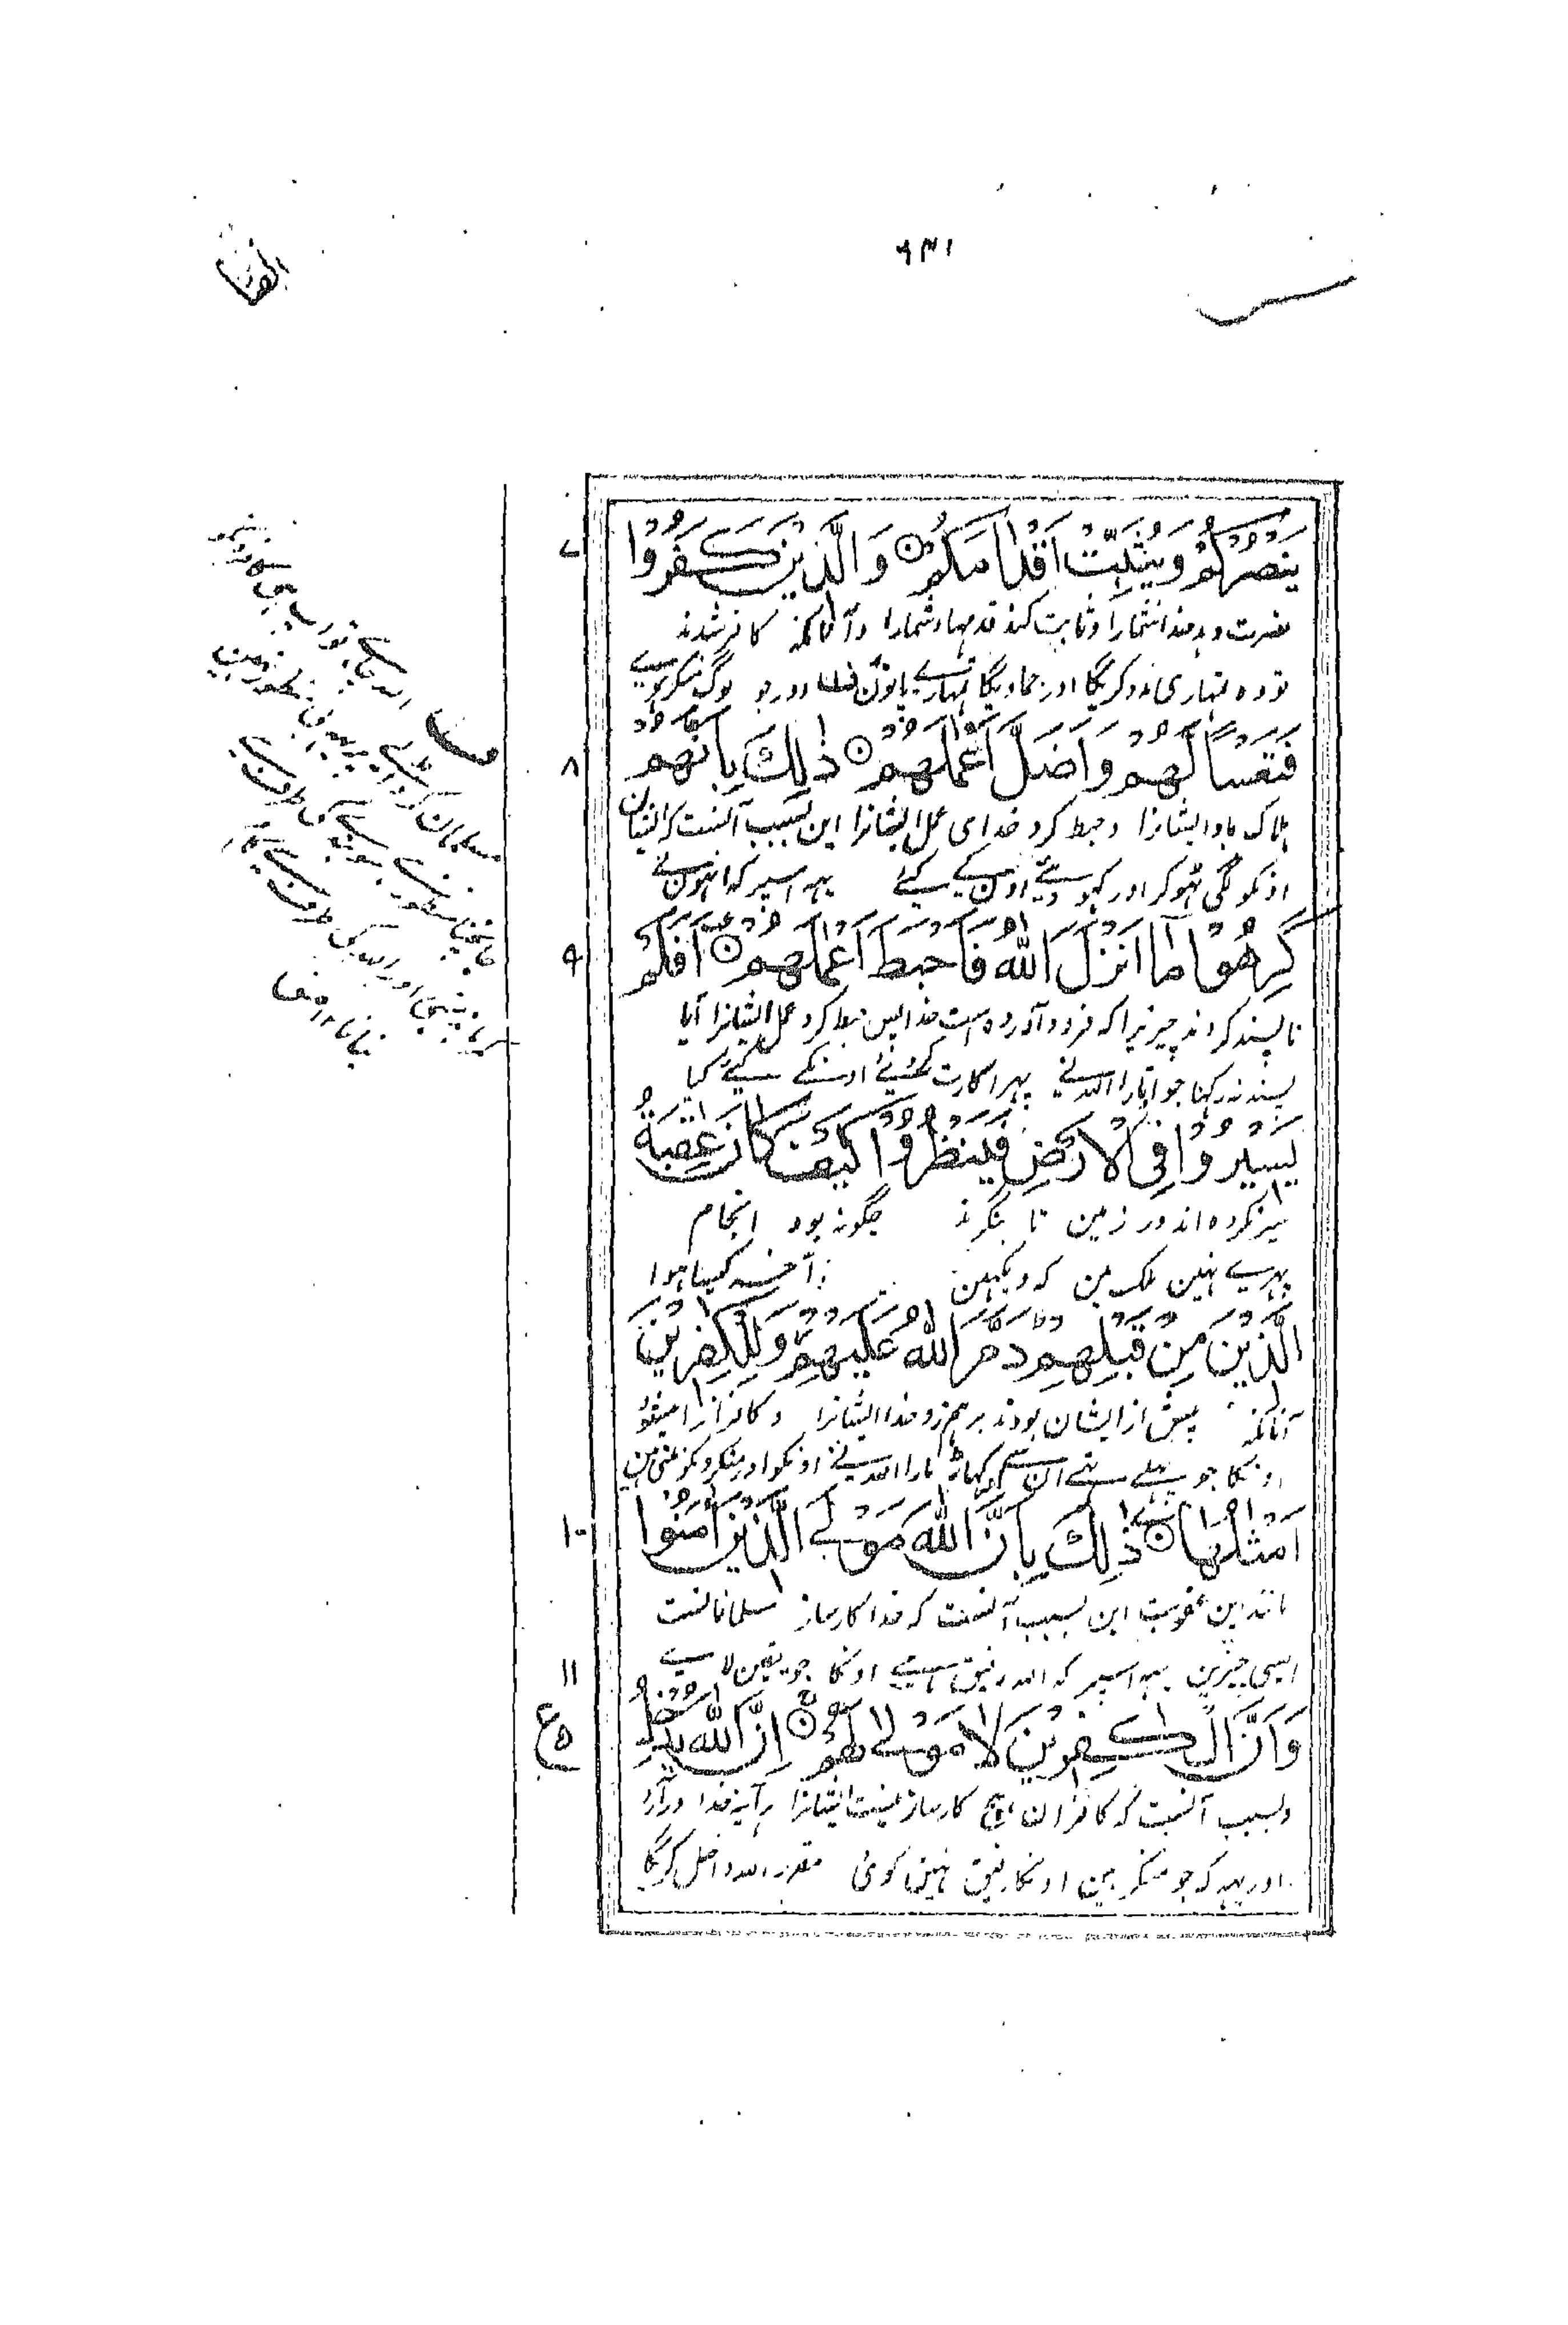 ۹۳۱
يَنْصُرْكُمْ وَيُثَبِّتْ اَقْدَامَكُمْ ۝ وَالَّذِيْنَ كَفَرُوْا
۷
نصرت دہد خدا شمارا و ثابت کند قدمہاء شمارا و آنانکہ کافر شدند
تو وہ تمہاری مدد کریگا اور جماویگا تمہارے پانوں ف اور جو لوگ منکر ہوئے
فَتَعْسًا لَّهُمْ وَاَضَلَّ اَعْمَالَهُمْ ۝ ذٰلِكَ بِاَنَّهُمْ
۸
ہلاک باد ایشانرا و حبط کرد خدای عمل ایشانرا این بسبب آنست کہ ایشان
اونکو لگی ٹھوکر اور کھو دیئے اون کے کیئے یہہ اسپر کہ انہوں نے
كَرِهُوْا مَا اَنْزَلَ اللّٰهُ فَاَحْبَطَ اَعْمَالَهُمْ ۝ اَفَلَمْ
۹
ناپسند کردند چیزیرا کہ فرود آوردہ است خدا پس حبط کرد عمل ایشانرا آیا
پسند نہ رکہا جو اتارا اللہ نے پہر اکارت کئے اونکے کیئے کیا
يَسِيْرُوْا فِى الْاَرْضِ فَيَنْظُرُوْا كَيْفَ كَانَ عٰقِبَةُ
سیر نکردہ اند در زمین تا بنگرند چگونہ بود انجام
پہرے نہین ملک مین کہ دیکہین آخر کیسا ہوا
الَّذِيْنَ مِنْ قَبْلِهِمْ دَمَّرَ اللّٰهُ عَلَيْهِمْ وَلِلْكٰفِرِيْنَ
آنانکہ پیش از ایشان بودند برہم زد خدا ایشانرا و کافرانرا میشود
اونکا جو پہلے تہے ان سے اکہاڑ مارا اللہ نے اونکو اور منکرونکو ملتی ہین
اَمْثَالُهَا ۝ ذٰلِكَ بِاَنَّ اللّٰهَ مَوْلَى الَّذِيْنَ اٰمَنُوْا
۱۰
مانند این عقوبت این بسبب آنست کہ خدا کارساز مسلمانانست
ایسی چیزین یہہ اسپر کہ اللہ رفیق ہے اونکا جو یقین لائے
وَاَنَّ الْكٰفِرِيْنَ لَا مَوْلٰى لَهُمْ ۝ اِنَّ اللّٰهَ يُدْخِلُ
۱۱
ع ۵
وبسبب آنست کہ کافران ہیچ کارساز نیست ایشانرا ہرآینہ خدا درآرد
اور یہہ کہ جو منکر ہین اونکا رفیق نہین کوئی مقرر اللہ داخل کریگا
ف اللہ چاہے تو